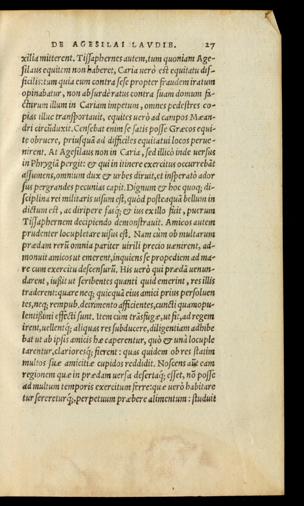 DE AGESILAI LAVDIB. 27
xilia mitterent. Tissaphernes autem, tum quoniam Age-
silaus equitem non haberet, Caria uerò est equitatu dif-
ficilis: tum quia eum contra sese propter fraudem iratum
opinabatur, non absurdè ratus contra suam domum fa-
cturum illum in Cariam impetum, omnes pedestres co-
pias illuc transportauit, equites uerò ad campos Mæan-
dri circũduxit. Censebat enim se satis posse Græcos equi-
te obruere, priusquā ad difficiles equitatui locos perue-
nirent. At Agesilaus non in Caria, sed illicò inde uersus
in Phrygiā pergit: & qui in itinere exercitus occurrebāt
assumens, omnium dux & urbes diruit, et insperatò ador
sus pergrandes pecunias capit. Dignum & hoc quoq; di-
sciplina rei militaris uisum est, quòd posteaquā bellum in
dictum est, ac diripere fasq́; & ius exillo fuit, puerum
Tissaphernem decipiendo demonstrauit. Amicos autem
prudenter locupletare uisus est. Nam cùm ob multarum
prædam rerũ omnia pariter uirili precio uænirent, ad-
monuit amicos ut emerent, inquiens se propediem ad ma-
re cum exercitu descensurũ. His uerò qui prædā uenun-
darent, iußit ut scribentes quanti quid emerint, res illis
traderent: quare neq; quicquā eius amici prius persoluen
tes, neq; rempub. detrimento afficientes, cuncti quamopu-
lentißimi effecti sunt. Item cùm trāsfugæ, ut fit, ad regem
irent, uellentq́; aliquas res subducere, diligentiam adhibe
bat ut ab ipsis amicis hæ caperentur, quò & unà locuple
tarentur, clarioresq́; fierent: quas quidem ob res statim
multos suæ amicitiæ cupidos reddidit. Noscens aūt eam
regionem quæ in prædam uersa desertaq́; esset, nō posse
ad multum temporis exercitum ferre: quæ uerò habitare
tur sereretur q́;, perpetuum præbere alimentum: studuit